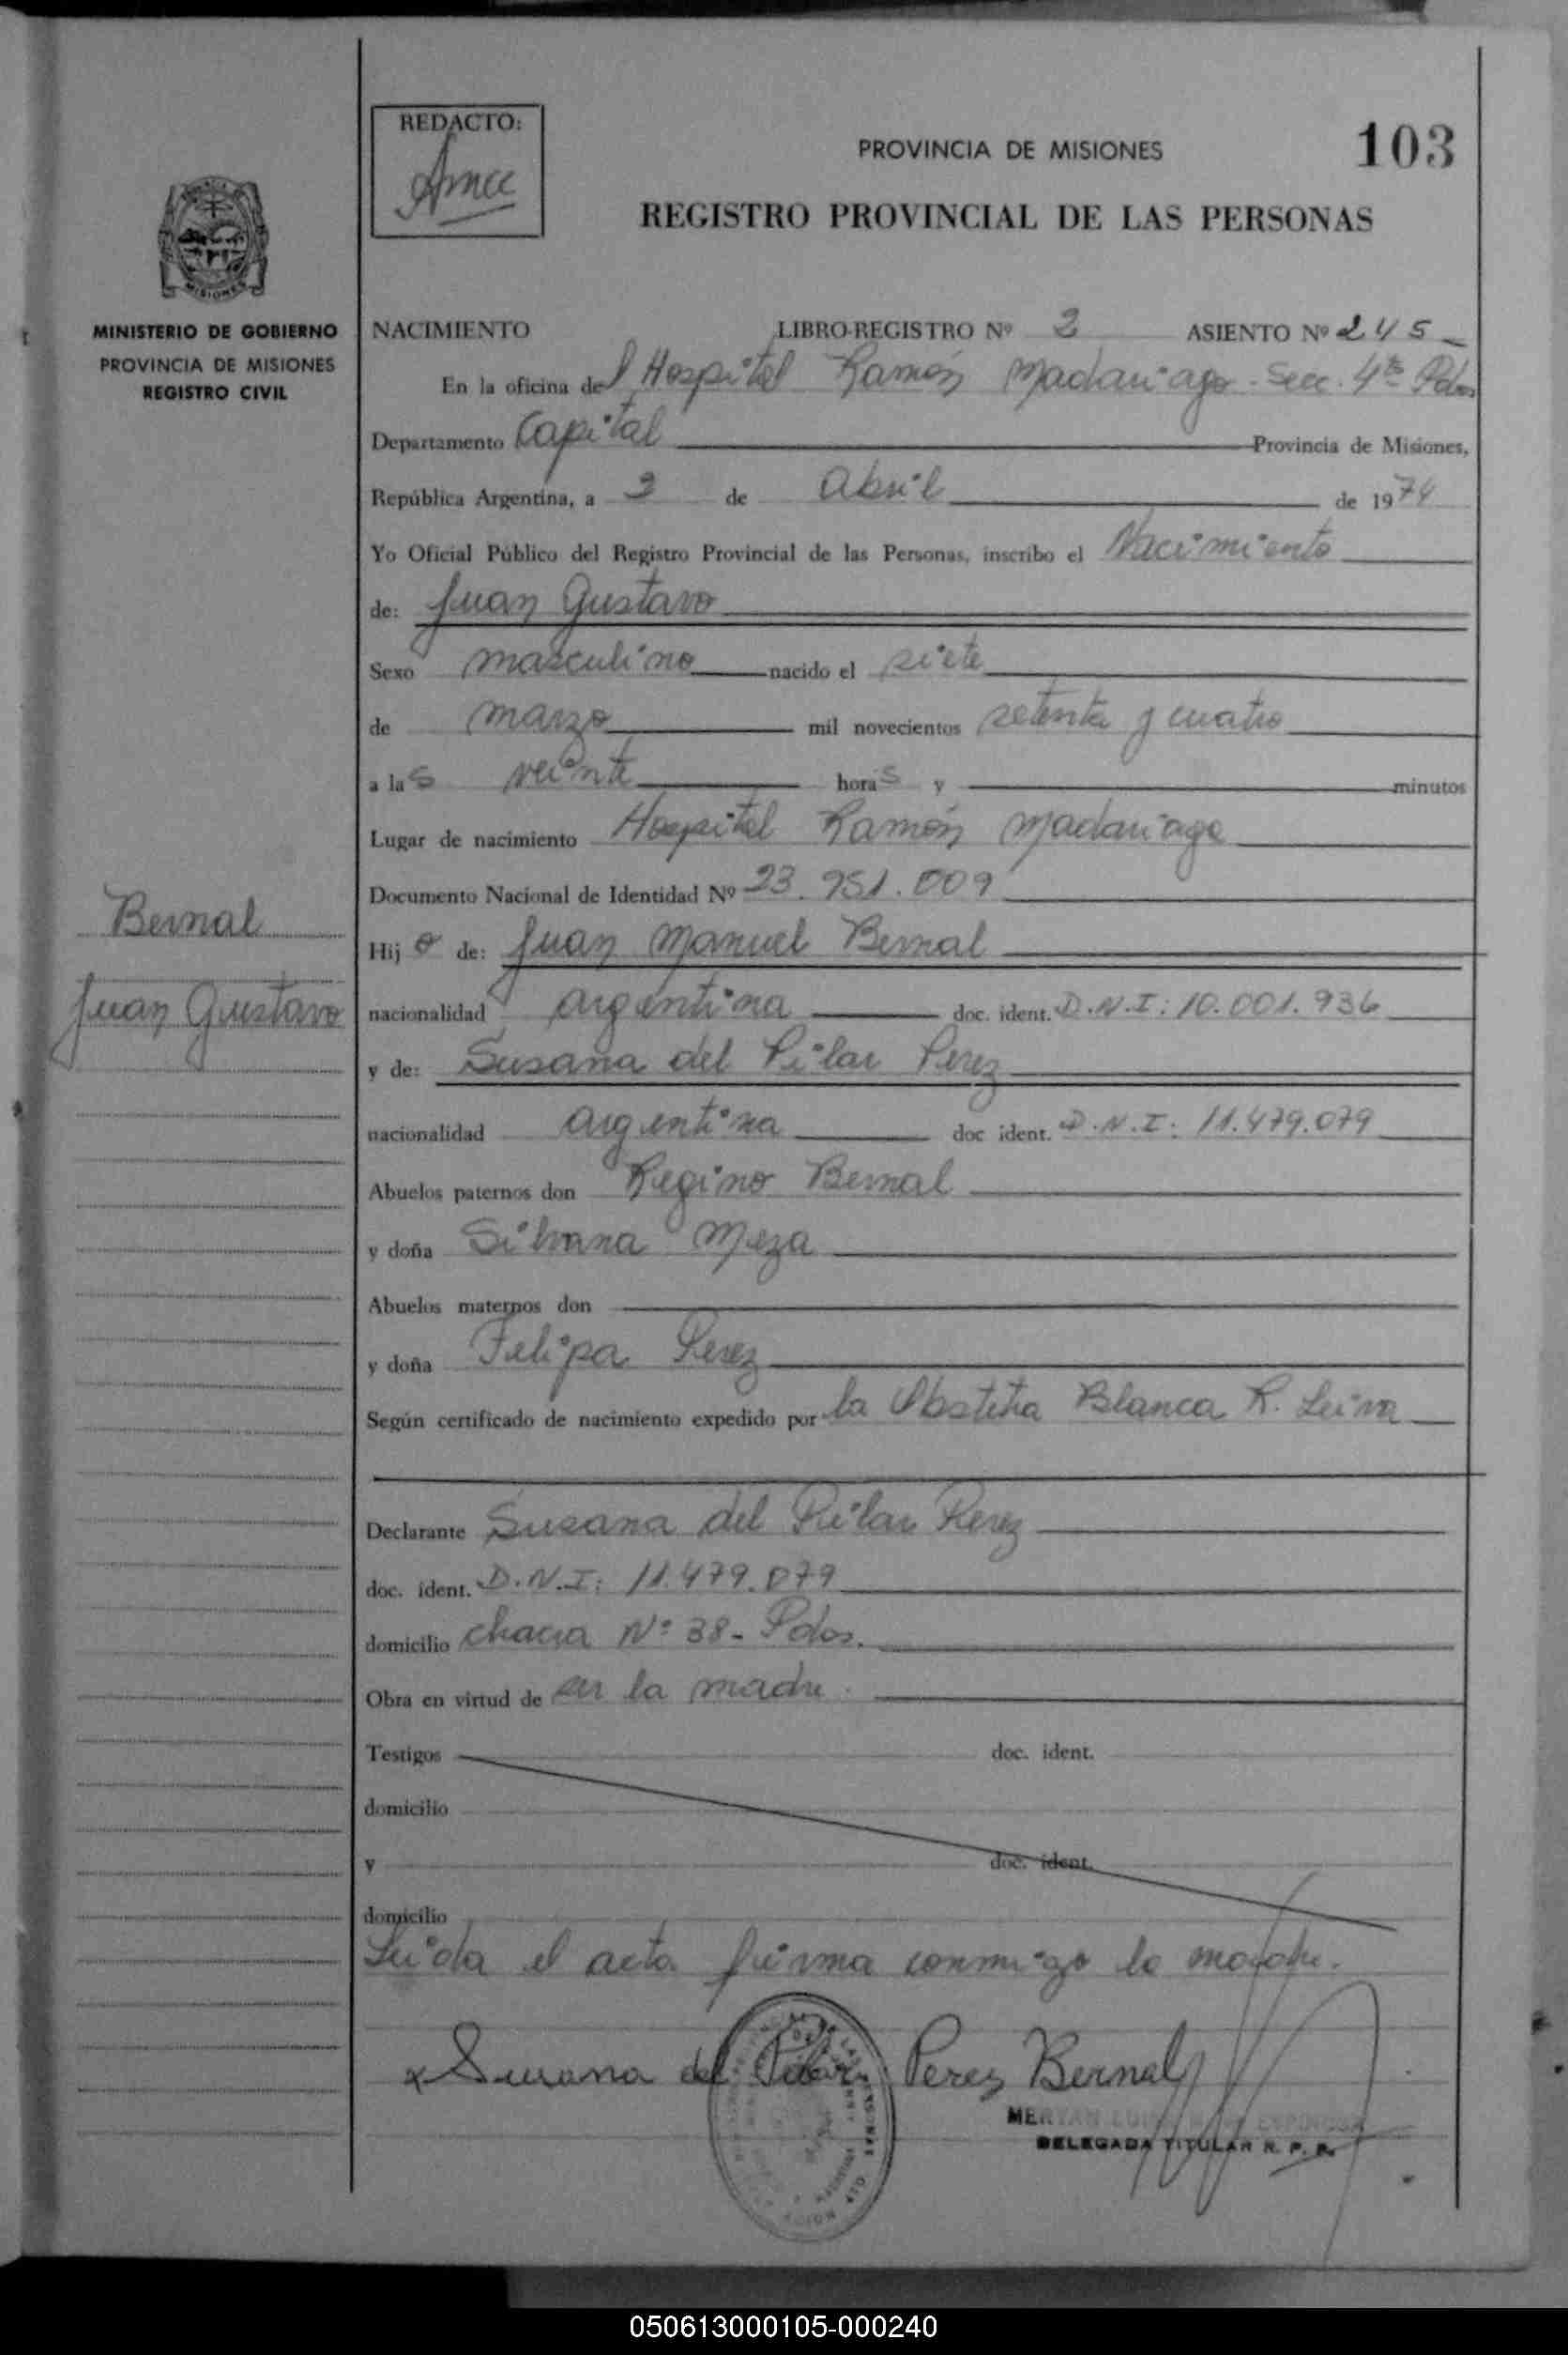 REDACTO:
Amce
PROVINCIA DE MISIONES
103
REGISTRO PROVINCIAL DE LAS PERSONAS
MISIONES
MINISTERIO DE GOBIERNO
PROVINCIA DE MISIONES
REGISTRO CIVIL
NACIMIENTO LIBRO-REGISTRO Nº 2 ASIENTO Nº 245
En la oficina del Hospital Ramón Madariaga - Secc. 4ta Pdas
Departamento Capital Provincia de Misiones,
República Argentina, a 2 de Abril de 1974
Yo Oficial Público del Registro Provincial de las Personas, inscribo el Nacimiento
de: Juan Gustavo
Sexo masculino nacido el siete
de marzo mil novecientos setenta y cuatro
a las veinte horas y minutos
Lugar de nacimiento Hospital Ramón Madariaga
Documento Nacional de Identidad Nº 23.951.009
Bernal
Hijo de: Juan Manuel Bernal
Juan Gustavo
nacionalidad argentina doc. ident. D.N.I: 10.001.936
y de: Susana del Pilar Perez
nacionalidad argentina doc ident. D.N.I: 11.479.079
Abuelos paternos don Regino Bernal
y doña Silvana Meza
Abuelos maternos don
y doña Felipa Perez
Según certificado de nacimiento expedido por la Obstetra Blanca R. Leiva
Declarante Susana del Pilar Perez
doc. ident. D.N.I: 11.479.079
domicilio chacra Nº 38- Pdas.
Obra en virtud de ser la madre.
Testigos doc. ident.
domicilio
y doc. ident.
domicilio
Leida el acta firma conmigo la madre.
x Susana del Pilar Perez Bernal
DELEGADA TITULAR R. P. P.
050613000105-000240